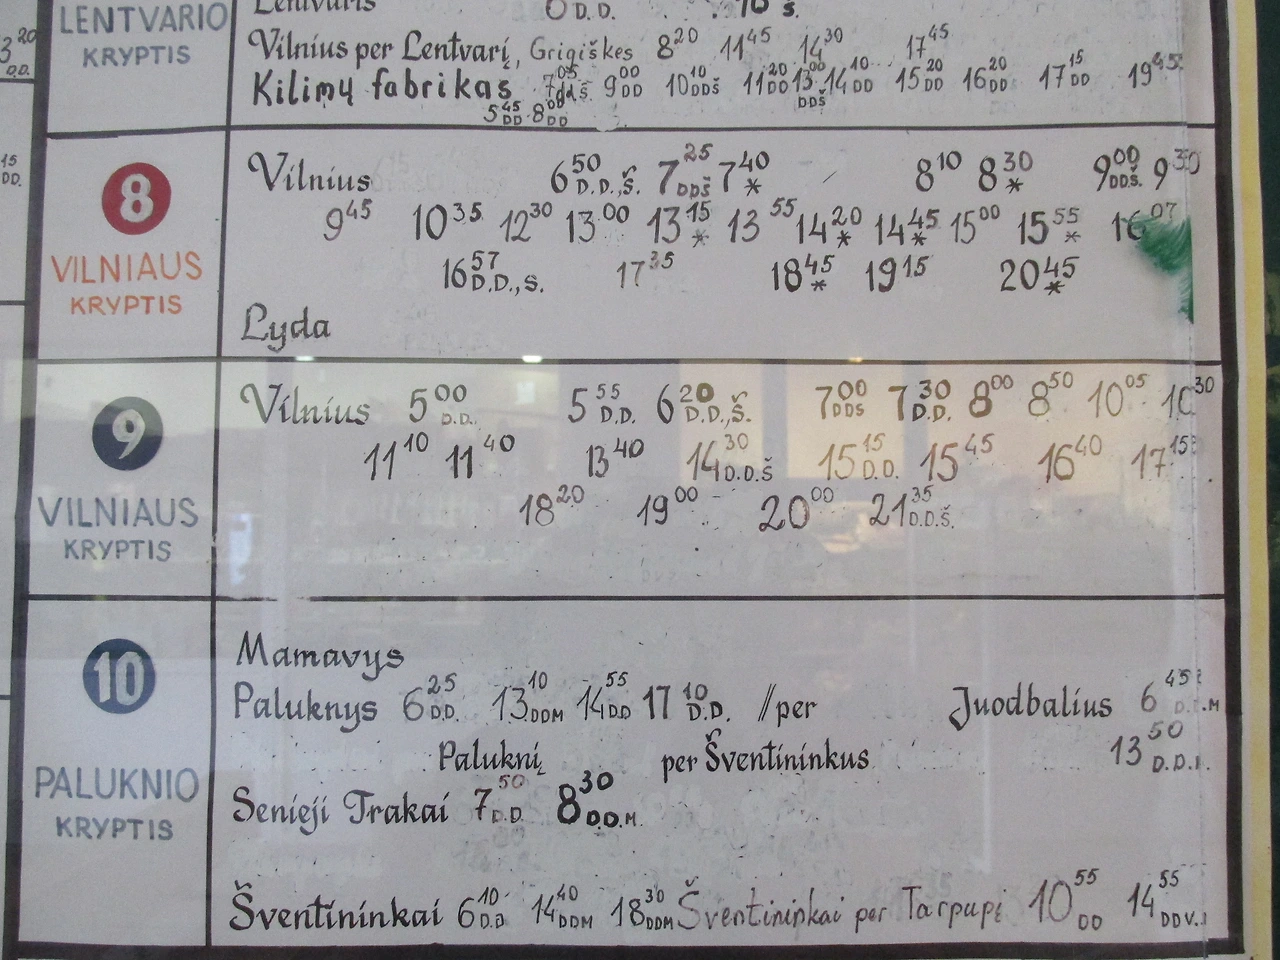 Lentvaris D.D. Š.
LENTVARIO
KRYPTIS
Vilnius per Lentvarį, Grigiškes 8²⁰ 11⁴⁵ 14³⁰ 17⁴⁵
Kilimų fabrikas 7⁰⁵ 9⁰⁰ DD 10¹⁰ DDŠ 11²⁰ DD 13⁰⁰ DDŠ 14¹⁰ DD 15²⁰ DD 16²⁰ DD 17¹⁵ DD 19⁴⁵
5⁴⁵ DD 8⁰⁰ DD
8
VILNIAUS
KRYPTIS
Vilnius 6⁵⁰ D.D.,Š. 7²⁵ DDŠ 7⁴⁰ * 8¹⁰ 8³⁰ * 9⁰⁰ DDŠ. 9³⁰
9⁴⁵ 10³⁵ 12³⁰ 13⁰⁰ 13¹⁵ * 13⁵⁵ 14²⁰ * 14⁴⁵ * 15⁰⁰ 15⁵⁵ * 16⁰⁷
16⁵⁷ D.D.,S. 17³⁵ 18⁴⁵ * 19¹⁵ 20⁴⁵ *
Lyda
9
VILNIAUS
KRYPTIS
Vilnius 5⁰⁰ D.D. 5⁵⁵ D.D. 6²⁰ D.D.,Š. 7⁰⁰ DDS 7³⁰ D.D. 8⁰⁰ 8⁵⁰ 10⁰⁵ 10³⁰
11¹⁰ 11⁴⁰ 13⁴⁰ 14³⁰ D.D.Š 15¹⁵ D.D. 15⁴⁵ 16⁴⁰ 17¹⁵
18²⁰ 19⁰⁰ 20⁰⁰ 21³⁵ D.D.Š.
10
PALUKNIO
KRYPTIS
Mamavys
Paluknys 6²⁵ D.D. 13¹⁰ DDM 14⁵⁵ D.D 17¹⁰ D.D. //per Juodbalius 6⁴⁵
Paluknį per Šventininkus 13⁵⁰
Senieji Trakai 7⁵⁰ D.D. 8³⁰ D.D.M.
Šventininkai 6¹⁰ D.D 14⁴⁰ DDM 18³⁰ DDM Šventininkai per Tarpupi 10⁵⁵ DD 14⁵⁵